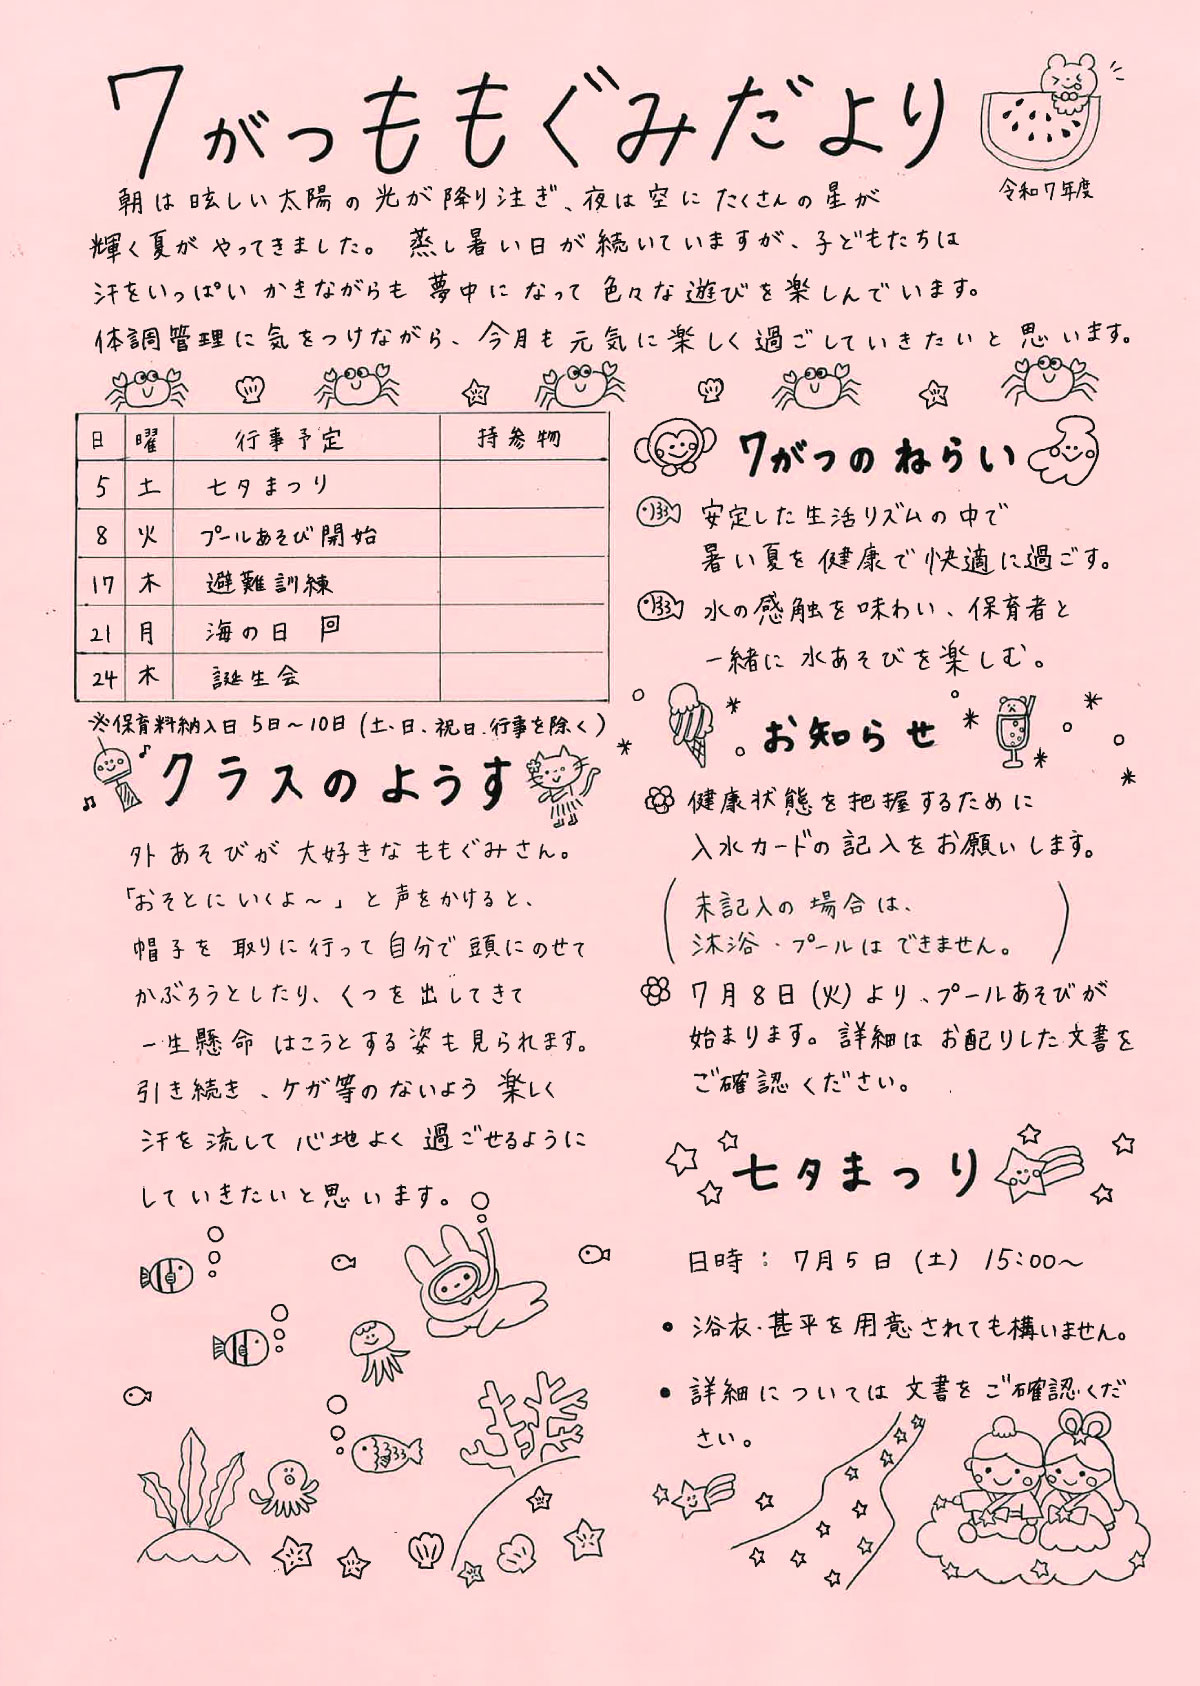 7がつももぐみだより
令和7年度
朝は眩しい太陽の光が降り注ぎ、夜は空にたくさんの星が
輝く夏がやってきました。蒸し暑い日が続いていますが、子どもたちは
汗をいっぱいかきながらも夢中になって色々な遊びを楽しんでいます。
体調管理に気をつけながら、今月も元気に楽しく過ごしていきたいと思います。
日 曜 行事予定 持参物
5 土 七夕まつり
8 火 プールあそび開始
17 木 避難訓練
21 月 海の日
24 木 誕生会
※保育料納入日 5日〜10日(土、日、祝日、行事を除く)
クラスのようす
外あそびが大好きなももぐみさん。
「おそとにいくよ〜」と声をかけると、
帽子を取りに行って自分で頭にのせて
かぶろうとしたり、くつを出してきて
一生懸命はこうとする姿も見られます。
引き続き、ケガ等のないよう楽しく
汗を流して心地よく過ごせるように
していきたいと思います。
7がつのねらい
安定した生活リズムの中で
暑い夏を健康で快適に過ごす。
水の感触を味わい、保育者と
一緒に水あそびを楽しむ。
お知らせ
健康状態を把握するために
入水カードの記入をお願いします。
(未記入の場合は、
沐浴・プールはできません。)
7月8日(火)より、プールあそびが
始まります。詳細はお配りした文書を
ご確認ください。
七夕まつり
日時:7月5日(土)15:00〜
• 浴衣・甚平を用意されても構いません。
• 詳細については文書をご確認くだ
さい。